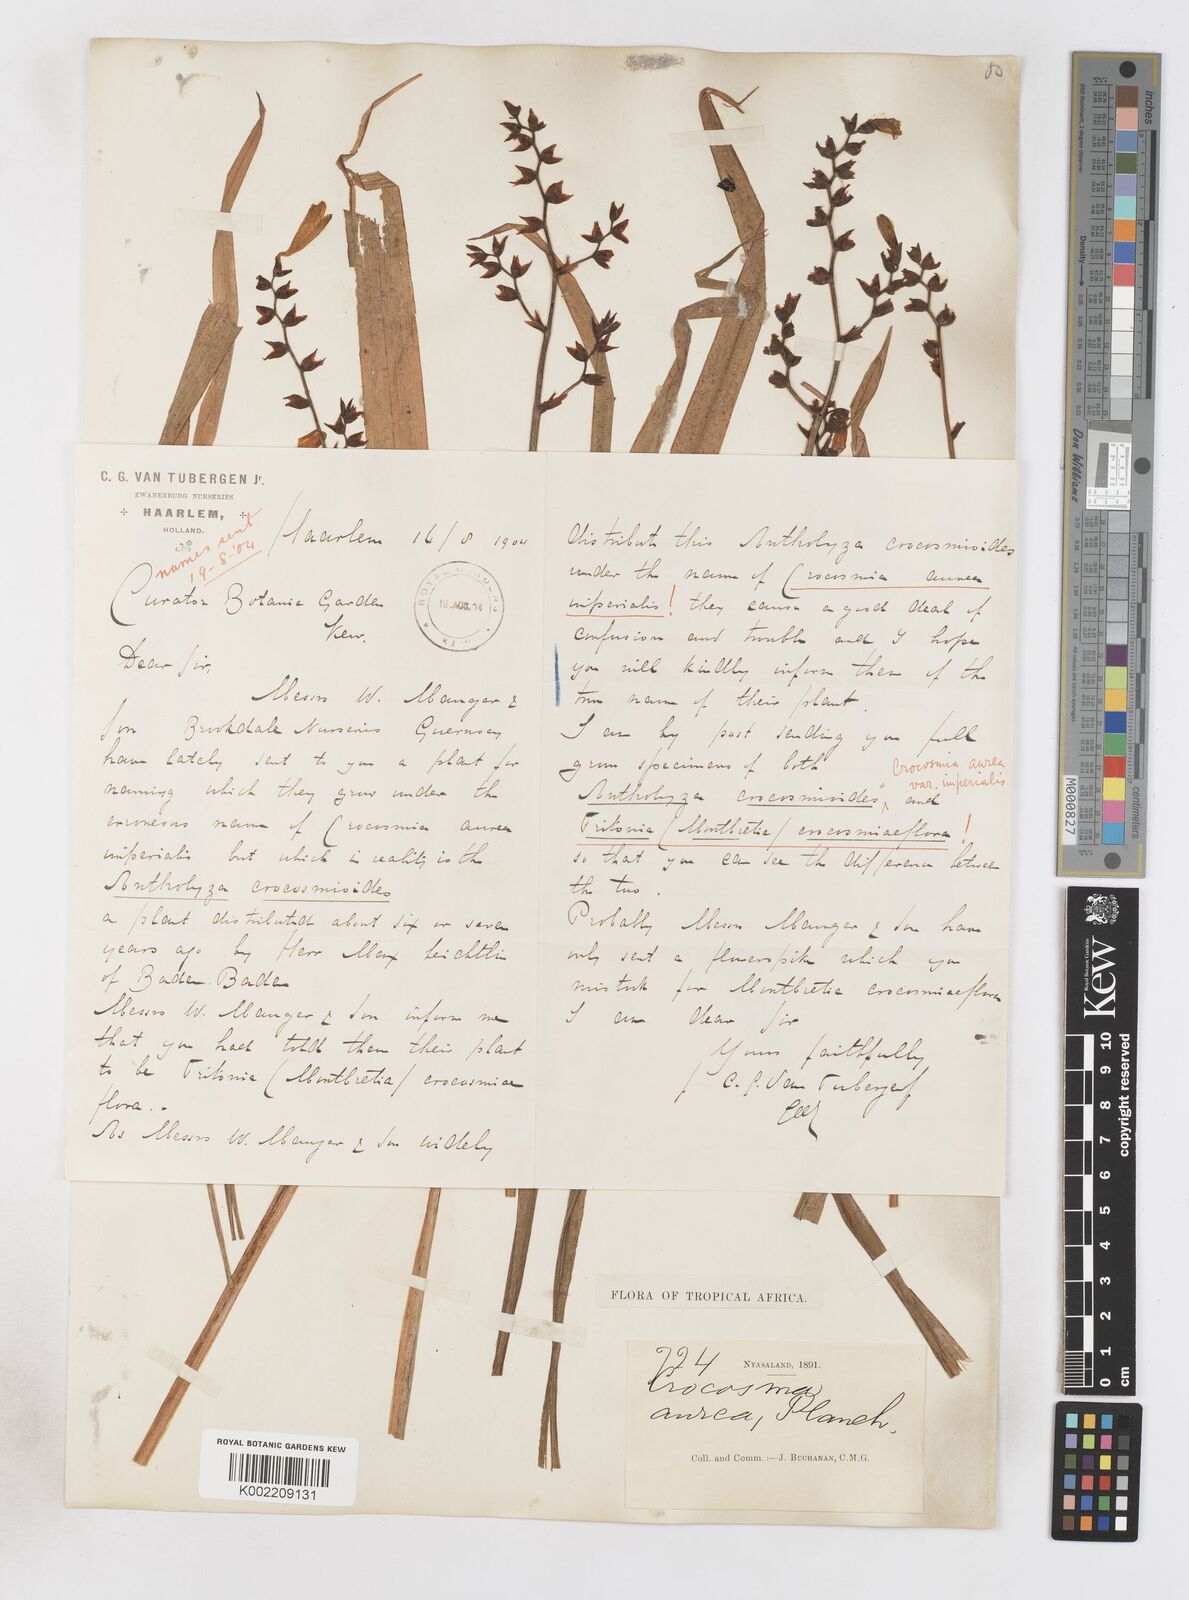 80
C. G. VAN TUBERGEN Jr.
ZWANENBURG NURSERIES
HAARLEM,
HOLLAND.
names sent
19-8-'04
Haarlem 16/8 1904
Curator Botanic Garden
Kew.
ROYAL GARDENS
18 AUG. 04
KEW
Dear Sir,
Messrs W. Mauger &
Son Brookdale Nurseries Guernsey
have lately sent to you a plant for
naming which they grow under the
erroneous name of Crocosmia aurea
imperialis but which in reality is the
Antholyza crocosmioides
a plant distributed about six or seven
years ago by Herr Max Leichtlin
of Baden. Baden
Messrs W. Mauger & Son inform me
that you had told them their plant
to be Tritonia (Montbretia) crocosmiae
flora..
As Messrs W. Mauger & Son widely
distribute this Antholyza crocosmioides
under the name of Crocosmia aurea
imperialis! they cause a good deal of
confusion and trouble and I hope
you will kindly inform them of the
true name of their plant.
I am by post sending you full
grown specimens of both
Crocosmia aurea
var. imperialis
Antholyza crocosmioides and
Tritonia (Montbretia) crocosmiaeflora!
so that you can see the difference between
the two.
Probably Messrs Mauger & Son have
only sent a flowerspike which you
mistook for Montbretia crocosmiaeflora
I am dear Sir
Yours faithfully
C. G. Van Tubergen Jr
FLORA OF TROPICAL AFRICA.
224 NYASALAND, 1891.
Crocosma
aurea, Planch.
Coll. and Comm.:—J. BUCHANAN, C.M.G.
ROYAL BOTANIC GARDENS KEW
K002209131
inches
centimetres
Density
Don Williams
M000827
Royal Botanic Gardens
Kew
0 1 2 3 4 5 6 7 8 9 10
cm
copyright reserved